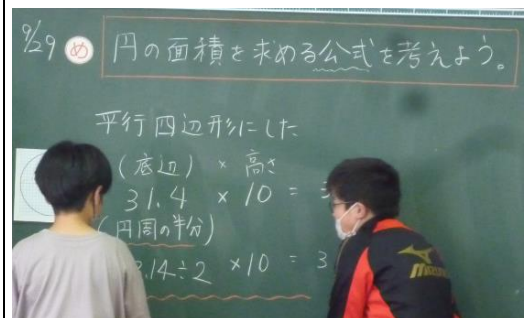 9/29 め 円の面積を求める公式を考えよう。
平行四辺形にした
(底辺) × 高さ
31.4 × 10 = 3
(円周の半分)
3.14÷2 ×10 = 3
mizuno